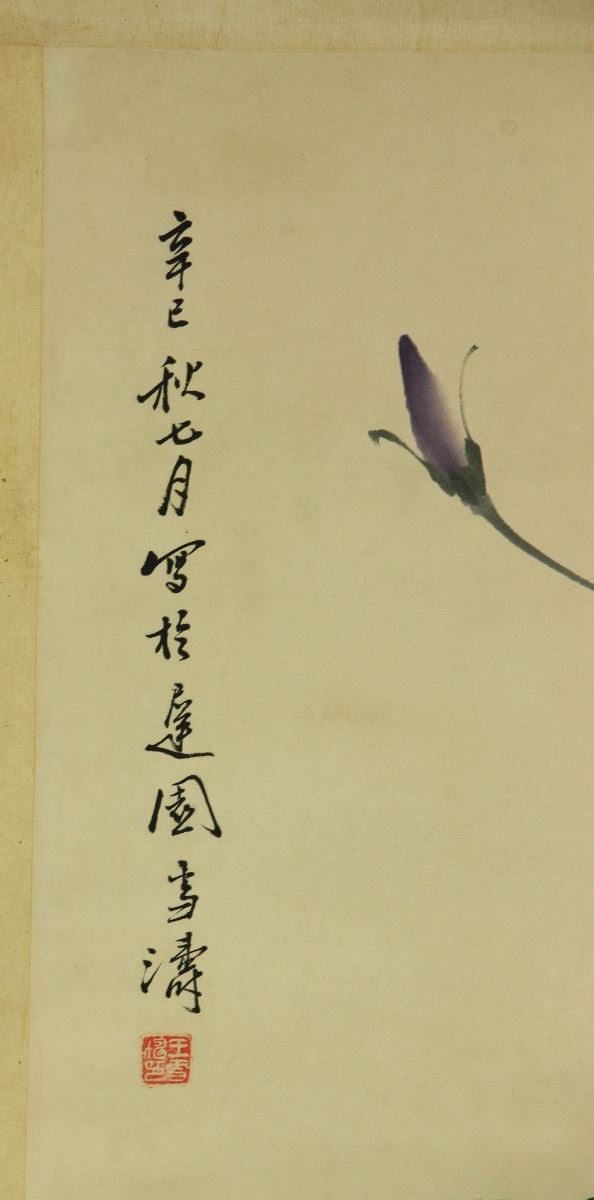 辛巳秋七月寫於遲園雪濤
王雪濤印